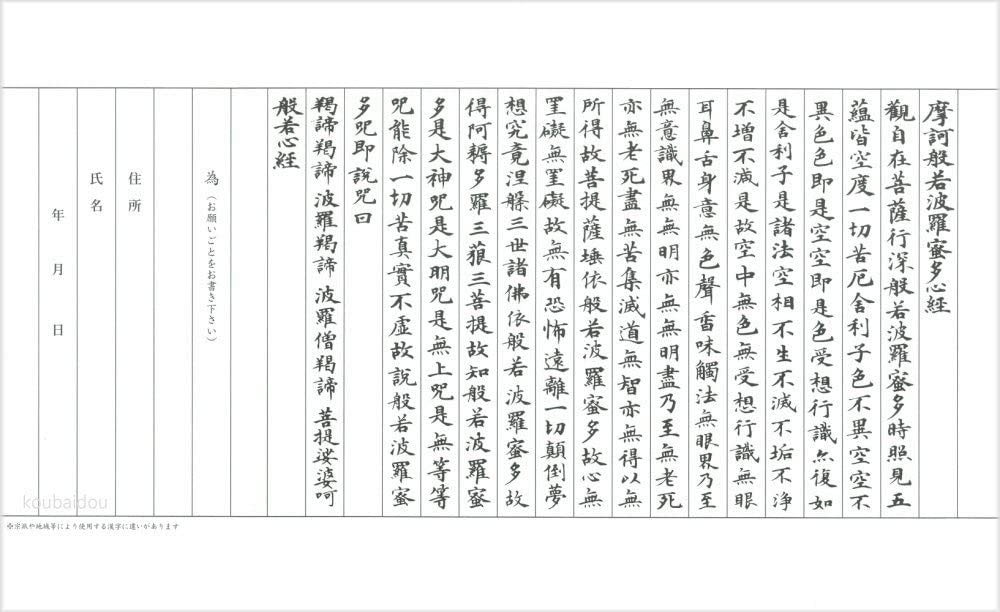 摩訶般若波羅蜜多心経
觀自在菩薩行深般若波羅蜜多時照見五
蘊皆空度一切苦厄舍利子色不異空空不
異色色即是空空即是色受想行識亦復如
是舍利子是諸法空相不生不滅不垢不淨
不增不減是故空中無色無受想行識無眼
耳鼻舌身意無色聲香味觸法無眼界乃至
無意識界無無明亦無無明盡乃至無老死
亦無老死盡無苦集滅道無智亦無得以無
所得故菩提薩埵依般若波羅蜜多故心無
罣礙無罣礙故無有恐怖遠離一切顛倒夢
想究竟涅槃三世諸佛依般若波羅蜜多故
得阿耨多羅三藐三菩提故知般若波羅蜜
多是大神咒是大明咒是無上咒是無等等
咒能除一切苦真實不虛故說般若波羅蜜
多咒即說咒曰
羯諦羯諦 波羅羯諦 波羅僧羯諦 菩提娑婆呵
般若心経
為（お願いごとをお書き下さい）
住所
氏名
年 月 日
※宗派や地域等により使用する漢字に違いがあります
koubaidou